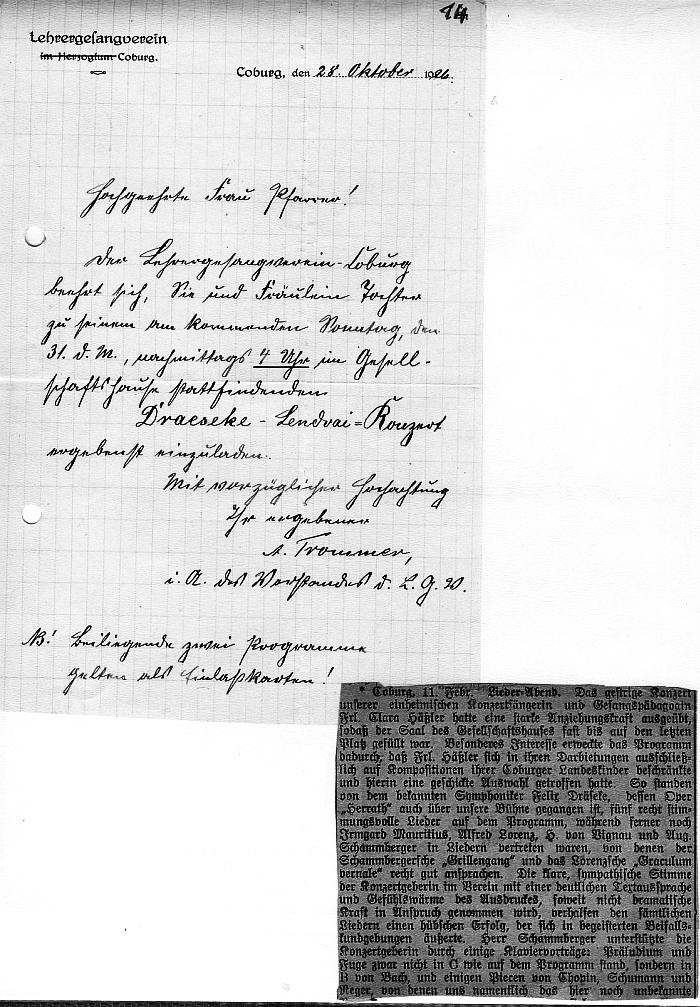 14
Lehrergesangverein
im Herzogtum Coburg.
Coburg, den 28. Oktober 1926.
Hochgeehrte Frau Pfarrer!
Der Lehrergesangverein-Coburg
beehrt sich, Sie und Fräulein Tochter
zu seinem am kommenden Sonntag, den
31. d. M., nachmittags 4 Uhr im Gesell-
schaftshause stattfindenden
Draeseke - Lendvai = Konzert
ergebenst einzuladen.
Mit vorzüglicher Hochachtung
Ihr ergebener
A. Trommer,
i. A. des Vorstandes d. L. G. V.
NB! Beiliegende zwei Programme
gelten als Einlaßkarten!
* Coburg, 11. Febr. Lieder-Abend. Das gestrige Konzert
unserer einheimischen Konzertsängerin und Gesangspädagogin
Frl. Clara Häßler hatte eine starke Anziehungskraft ausgeübt,
sodaß der Saal des Gesellschaftshauses fast bis auf den letzten
Platz gefüllt war. Besonderes Interesse erweckte das Programm
dadurch, daß Frl. Häßler sich in ihren Darbietungen ausschließ-
lich auf Kompositionen ihrer Coburger Landeskinder beschränkte
und hierin eine geschickte Auswahl getroffen hatte. So standen
von dem bekannten Symphoniker Felix Dräseke, dessen Oper
„Herrath“ auch über unsere Bühne gegangen ist, fünf recht stim-
mungsvolle Lieder auf dem Programm, während ferner noch
Irmgard Mauritius, Alfred Lorenz, H. von Vignau und Aug.
Schammberger in Liedern vertreten waren, von denen der
Schammbergersche „Grillengang“ und das Lorenzsche „Graculum
vernale“ recht gut ansprachen. Die klare, sympathische Stimme
der Konzertgeberin im Verein mit einer deutlichen Textaussprache
und Gefühlswärme des Ausdruckes, soweit nicht dramatische
Kraft in Anspruch genommen wird, verhalfen den sämtlichen
Liedern einen hübschen Erfolg, der sich in begeisterten Beifalls-
kundgebungen äußerte. Herr Schammberger unterstützte die
Konzertgeberin durch einige Klaviervorträge: Präludium und
Fuge zwar nicht in C wie auf dem Programm stand, sondern in
B von Bach, und einigen Piecen von Chopin, Schumann und
Reger, von denen uns namentlich das hier noch unbekannte